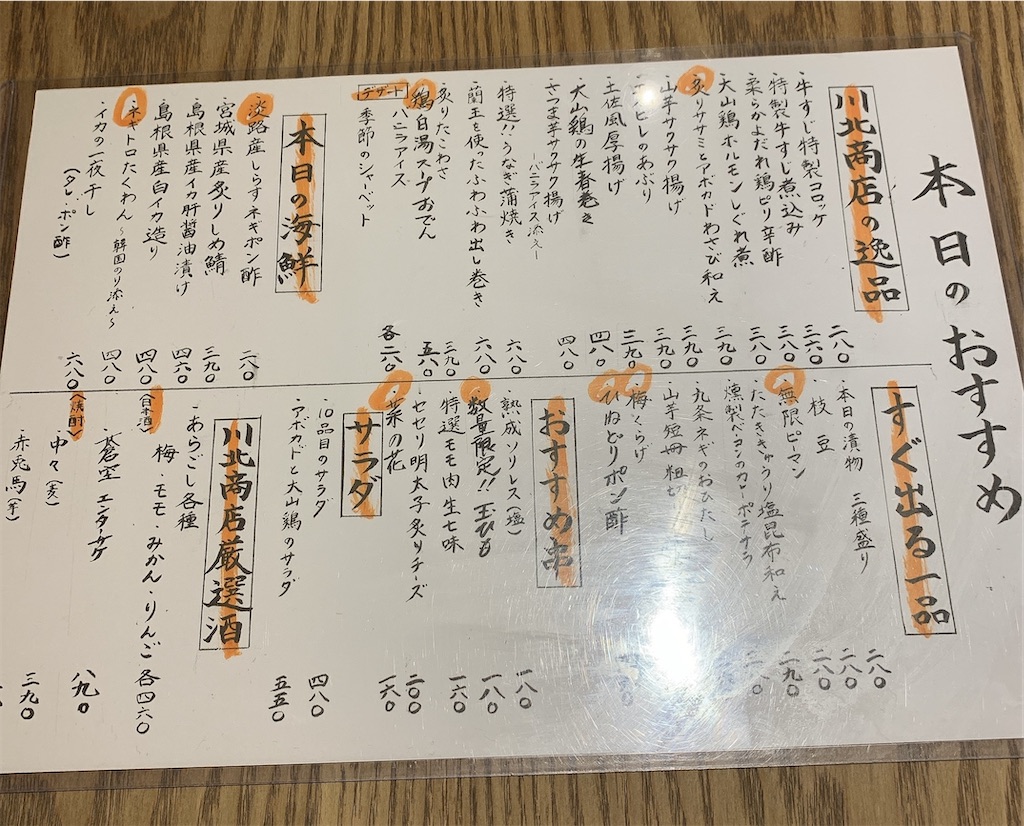 本日のおすすめ
川北商店の逸品
・牛すじ特製コロッケ 二八〇
特製牛すじ煮込み 三六〇
柔らかよだれ鶏ピリ辛酢 三八〇
大山鶏ホルモンしぐれ煮 三八〇
炙りササミとアボカドわさび和え 三九〇
山芋サクサク揚げ 三九〇
エイヒレのあぶり 三九〇
土佐風厚揚げ 三九〇
大山鶏の生春巻き 四八〇
さつま芋サクサク揚げ 四八〇
ーバニラアイス添えー
特選!!うなぎ蒲焼き 六八〇
蘭王を使ったふわふわ出し巻き 六八〇
炙りたこわさ 三九〇
・鶏白湯スープおでん 五八〇
デザート
・バニラアイス
季節のシャーベット 各二八〇
本日の海鮮
・淡路産しらすネギポン酢 二八〇
宮城県産炙りしめ鯖 三九〇
島根県産イカ肝醤油漬け 四六〇
島根県産白イカ造り 四八〇
・ネギトロたくわん〜韓国のり添え〜 四八〇
・イカの一夜干し 六八〇
(タレ・ポン酢)
すぐ出る一品
本日の漬物 三種盛り 二八〇
枝豆 二八〇
・無限ピーマン 二八〇
たたききゅうり塩昆布和え 二九〇
燻製ベーコンのカレーポテサラ
九条ネギのおひたし
山芋短冊粗切
・梅くらげ
・ひねどりポン酢
おすすめ串
熟成ソリレス(塩) 一八〇
・数量限定!!玉ひも 一八〇
特選モモ肉生七味 一六〇
・セセリ明太子炙りチーズ 二〇〇
・菜の花 一六〇
サラダ
・10品目のサラダ 四八〇
・アボカドと大山鶏のサラダ 五五〇
川北商店厳選酒
・あらごし各種
梅・モモ・みかん・りんご 各四六〇
(日本酒)
・蒼空 エンターサケ 八九〇
(焼酎)
中々(麦) 三九〇
赤兎馬(芋)